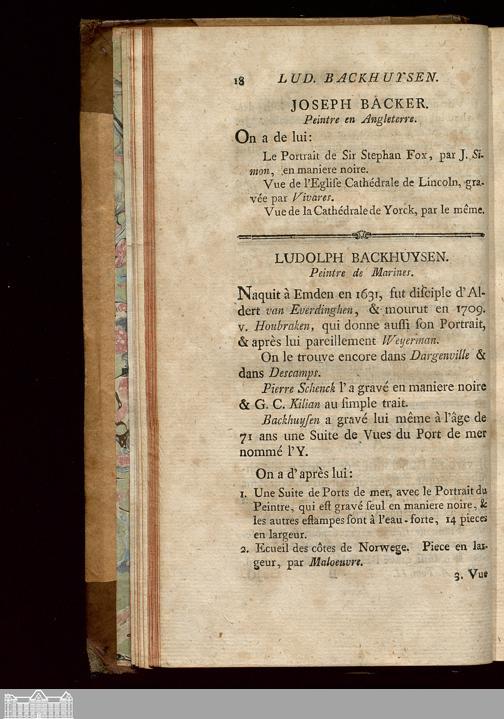 18 LUD. BACKHUYSEN.
JOSEPH BACKER.
Peintre en Angleterre.
On a de lui:
Le Portrait de Sir Stephan Fox, par J. Si-
mon, en maniere noire.
Vue de l'Egliſe Cathédrale de Lincoln, gra-
vée par Vivares.
Vue de la Cathédrale de Yorck, par le même.
LUDOLPH BACKHUYSEN.
Peintre de Marines.
Naquit à Emden en 1631, fut diſciple d'Al-
dert van Everdinghen, & mourut en 1709.
v. Houbraken, qui donne auſſi ſon Portrait,
& après lui pareillement Weyerman.
On le trouve encore dans Dargenville &
dans Descamps.
Pierre Schenck l'a gravé en maniere noire
& G. C. Kilian au ſimple trait.
Backhuyſen a gravé lui même à l'âge de
71 ans une Suite de Vues du Port de mer
nommé l'Y.
On a d'après lui:
1. Une Suite de Ports de mer, avec le Portrait du
Peintre, qui eſt gravé ſeul en maniere noire, &
les autres eſtampes ſont à l'eau-forte, 14 pieces
en largeur.
2. Ecueil des côtes de Norwege. Piece en lar-
geur, par Maloeuvre.
3. Vue